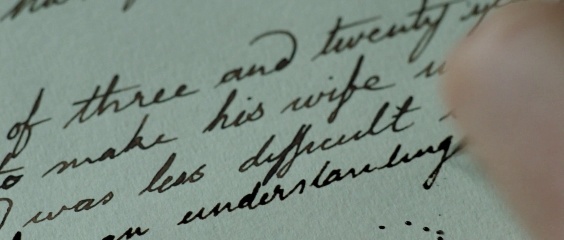 of three and twenty
to make his wife
was less difficult
understanding